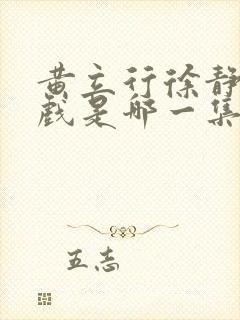 黄立行徐静
戏是哪一集
五志